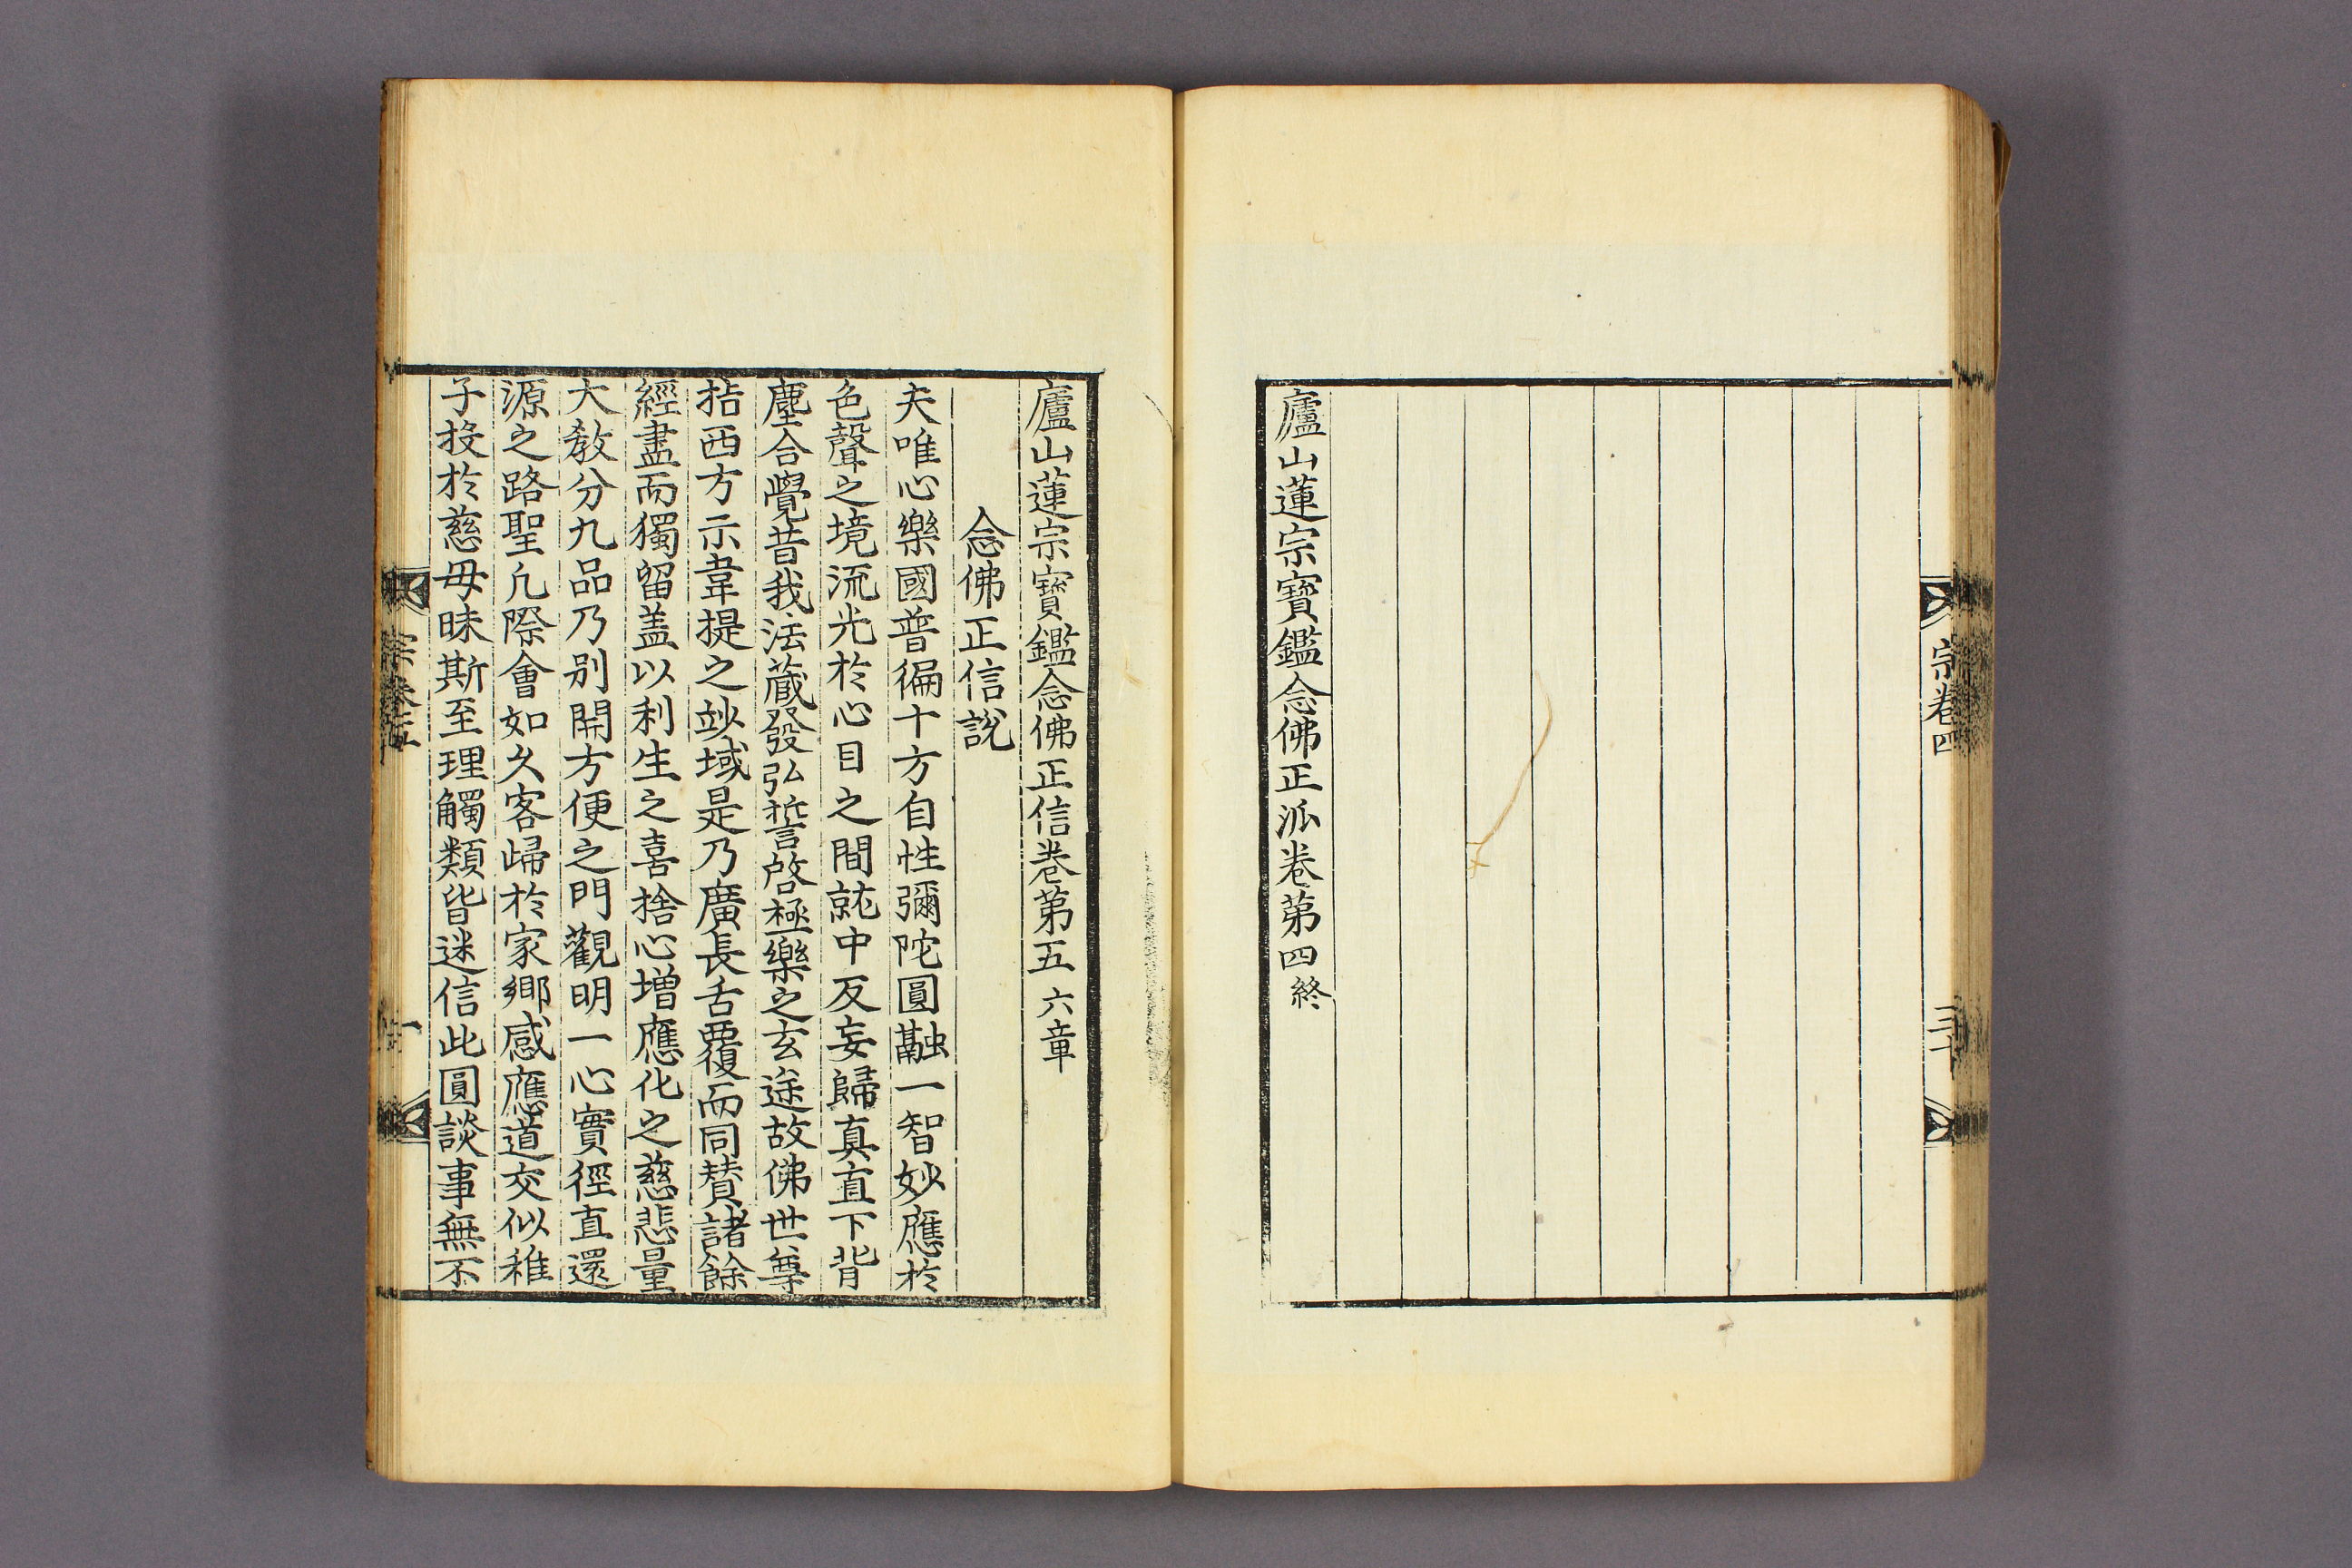 廬山蓮宗寶鑑念佛正派卷第四終
宗卷四
三十
廬山蓮宗寶鑑念佛正信卷第五 六章
念佛正信說
夫唯心樂國普徧十方自性彌陀圓融一智妙應於
色聲之境流光於心目之間就中反妄歸真直下背
塵合覺昔我法藏發弘誓啓極樂之玄途故佛世尊
拈西方示韋提之玅域是乃廣長舌覆而同賛諸餘
經盡而獨留盖以利生之喜捨心增應化之慈悲量
大教分九品乃别開方便之門觀明一心實徑直還
源之路聖凡際會如久客歸於家鄉感應道交似稚
子投於慈母昧斯至理觸類皆迷信此圓談事無不
宗卷五
一